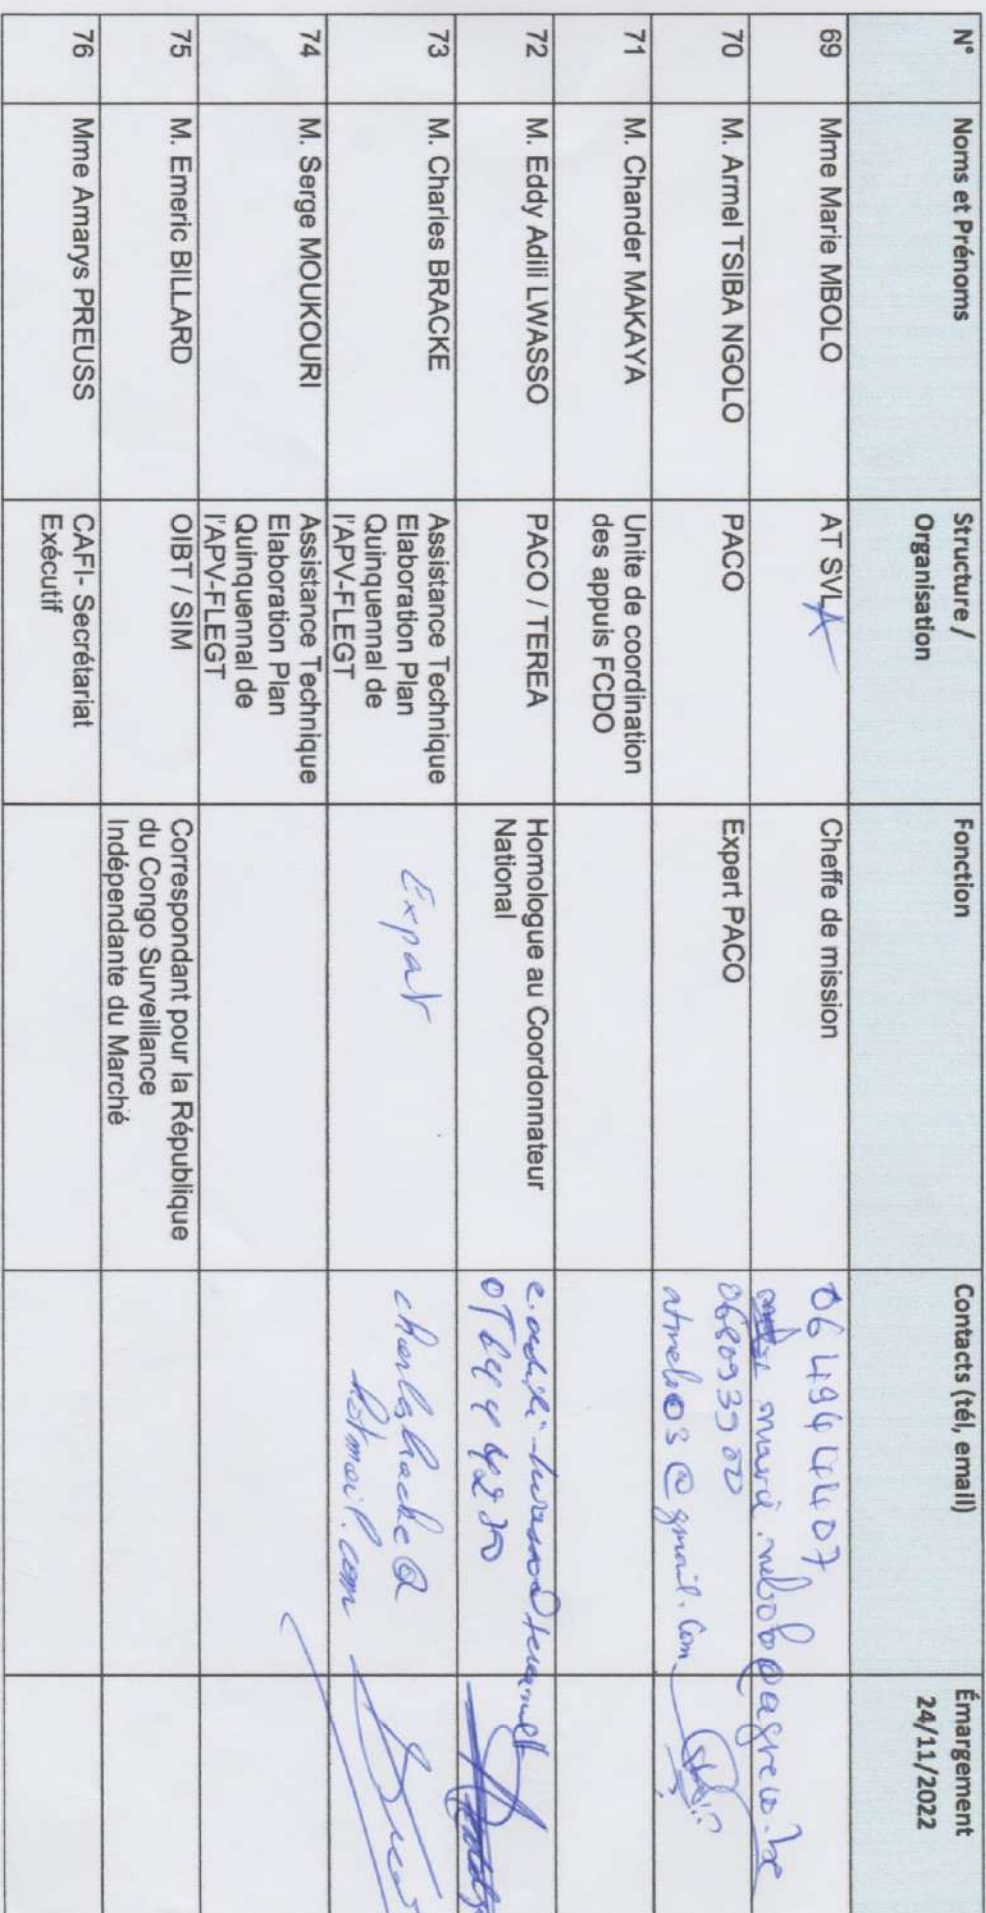 N° Noms et Prénoms Structure / Organisation Fonction Contacts (tél, email) Émargement 24/11/2022
69 Mme Marie MBOLO AT SVLA Cheffe de mission 06 494 44 07
70 M. Armel TSIBA NGOLO PACO Expert PACO @gmail.com
71 M. Chander MAKAYA Unite de coordination
des appuis FCDO
72 M. Eddy Adili LWASSO PACO / TEREA Homologue au Coordonnateur
National
73 M. Charles BRACKE Assistance Technique
Elaboration Plan
Quinquennal de
l'APV-FLEGT
Expat
hotmail.com
74 M. Serge MOUKOURI Assistance Technique
Elaboration Plan
Quinquennal de
l'APV-FLEGT
75 M. Emeric BILLARD OIBT / SIM Correspondant pour la République
du Congo Surveillance
Indépendante du Marché
76 Mme Amarys PREUSS CAFI- Secrétariat
Exécutif